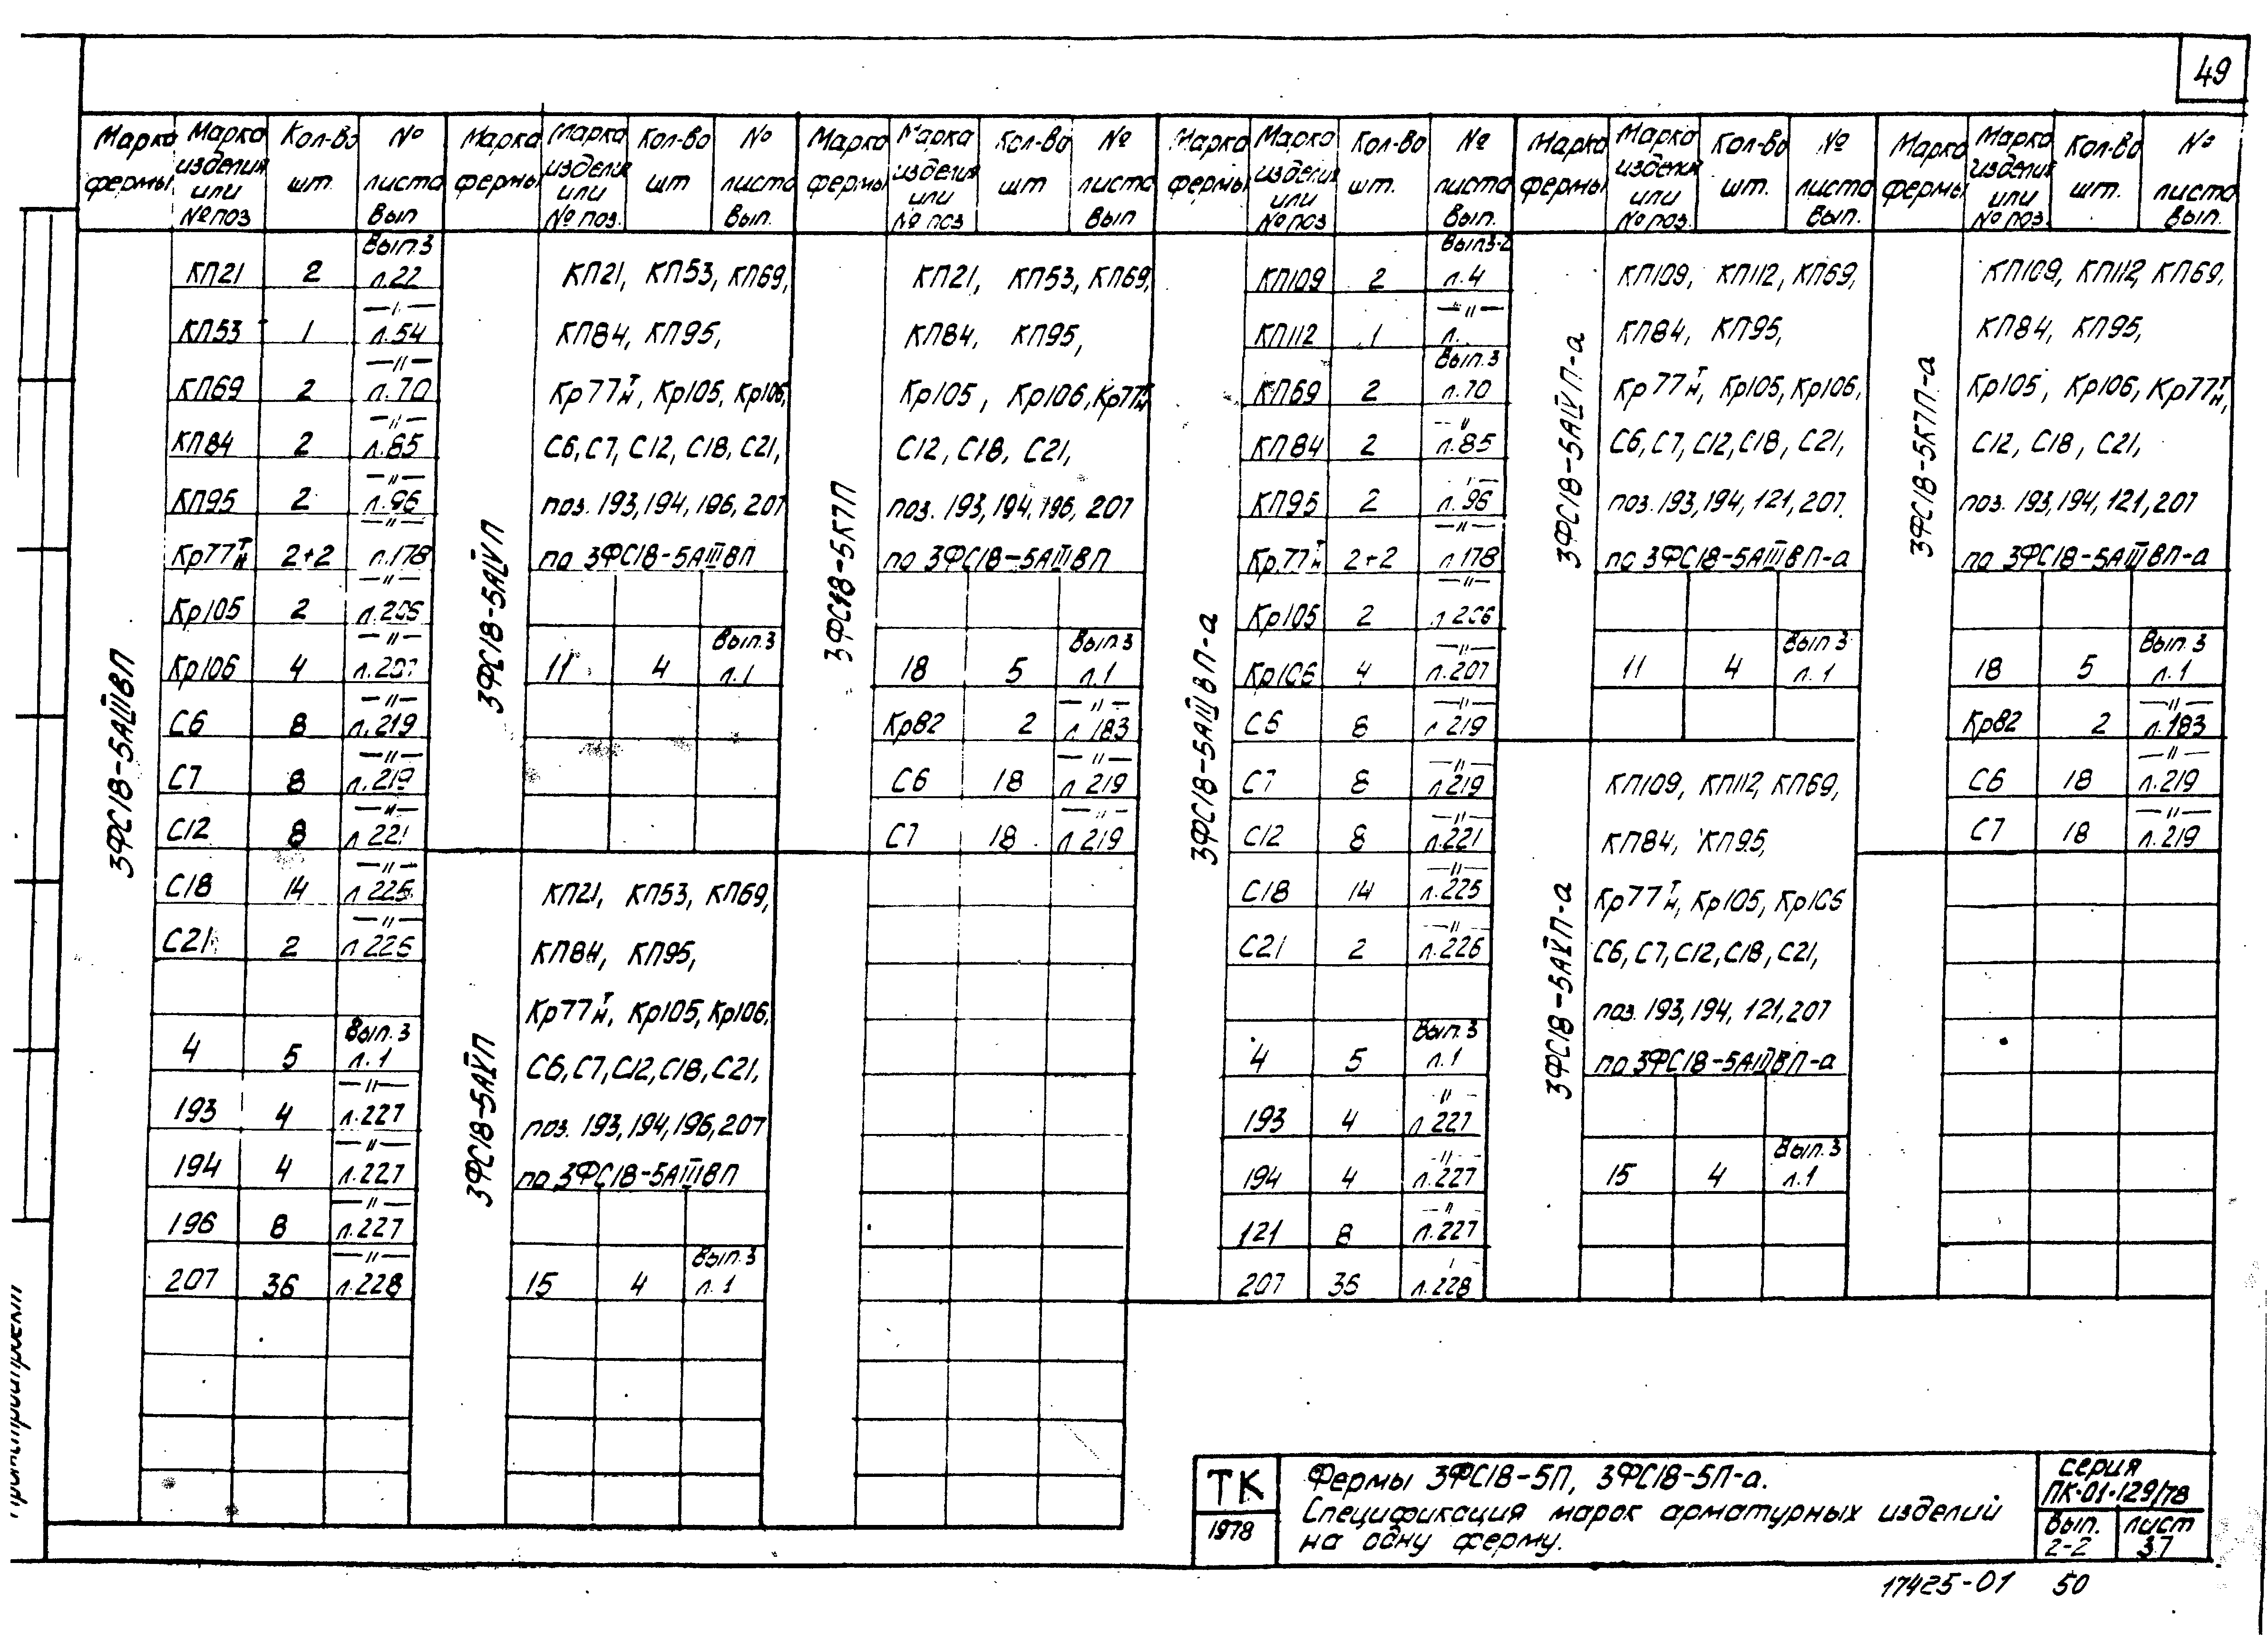 49
Марка фермы | Марка изделия или № поз | Кол-во шт. | № листа Вып
3ФС18-5АIIIВП
КП21 2 Вып.3 л.22
КП53 1 —"— л.54
КП69 2 —"— л.70
КП84 2 —"— л.85
КП95 2 —"— л.96
Кр77т/н 2+2 —"— л.178
Кр105 2 —"— л.206
Кр106 4 —"— л.207
С6 8 —"— л.219
С7 8 —"— л.219
С12 8 —"— л.221
С18 14 —"— л.225
С21 2 —"— л.226
4 5 Вып.3 л.1
193 4 —"— л.227
194 4 —"— л.227
196 8 —"— л.227
207 36 —"— л.228
Марка фермы | Марка изделия или № поз. | Кол-во шт | № листа Вып.
3ФС18-5АIVП
КП21, КП53, КП69,
КП84, КП95,
Кр77т/н, Кр105, Кр106,
С6, С7, С12, С18, С21,
поз. 193, 194, 196, 207
по 3ФС18-5АIIIВП
11 4 Вып.3 л.1
3ФС18-5АVП
КП21, КП53, КП69,
КП84, КП95,
Кр77т/н, Кр105, Кр106,
С6, С7, С12, С18, С21,
поз. 193, 194, 196, 207
по 3ФС18-5АIIIВП
15 4 Вып.3 л.1
Марка фермы | Марка изделия или № поз | Кол-во шт | № листа Вып
3ФС18-5К7П
КП21, КП53, КП69,
КП84, КП95,
Кр105, Кр106, Кр77т/н
С12, С18, С21,
поз. 193, 194, 196, 207
по 3ФС18-5АIIIВП
18 5 Вып.3 л.1
Кр82 2 —"— л.183
С6 18 —"— л.219
С7 18 —"— л.219
Марка фермы | Марка изделия или № поз | Кол-во шт. | № листа Вып.
3ФС18-5АIIIВП-а
КП109 2 Вып.3-2 л.4
КП112 1 —"— л.
КП69 2 Вып.3 л.70
КП84 2 —"— л.85
КП95 2 —"— л.96
Кр77т/н 2+2 —"— л.178
Кр105 2 —"— л.206
Кр106 4 —"— л.207
С6 8 —"— л.219
С7 8 —"— л.219
С12 8 —"— л.221
С18 14 —"— л.225
С21 2 —"— л.226
4 5 Вып.3 л.1
193 4 —"— л.227
194 4 —"— л.227
121 8 —"— л.227
207 36 л.228
Марка фермы | Марка изделия или № поз. | Кол-во шт. | № листа Вып.
3ФС18-5АIVП-а
КП109, КП112, КП69,
КП84, КП95,
Кр77т/н, Кр105, Кр106,
С6, С7, С12, С18, С21,
поз. 193, 194, 121, 207
по 3ФС18-5АIIIВП-а
11 4 Вып.3 л.1
3ФС18-5АVП-а
КП109, КП112, КП69,
КП84, КП95,
Кр77т/н, Кр105, Кр106
С6, С7, С12, С18, С21,
поз. 193, 194, 121, 207
по 3ФС18-5АIIIВП-а
15 4 Вып.3 л.1
Марка фермы | Марка изделия или № поз. | Кол-во шт. | № листа Вып.
3ФС18-5К7П-а
КП109, КП112, КП69,
КП84, КП95,
Кр105, Кр106, Кр77т/н,
С12, С18, С21,
поз. 193, 194, 121, 207
по 3ФС18-5АIIIВП-а
18 5 Вып.3 л.1
Кр82 2 —"— л.183
С6 18 —"— л.219
С7 18 —"— л.219
ТК
1978
Фермы 3ФС18-5П, 3ФС18-5П-а.
Спецификация марок арматурных изделий
на одну ферму.
серия
ПК-01-129/78
Вып. 2-2
лист 37
17425-01 50